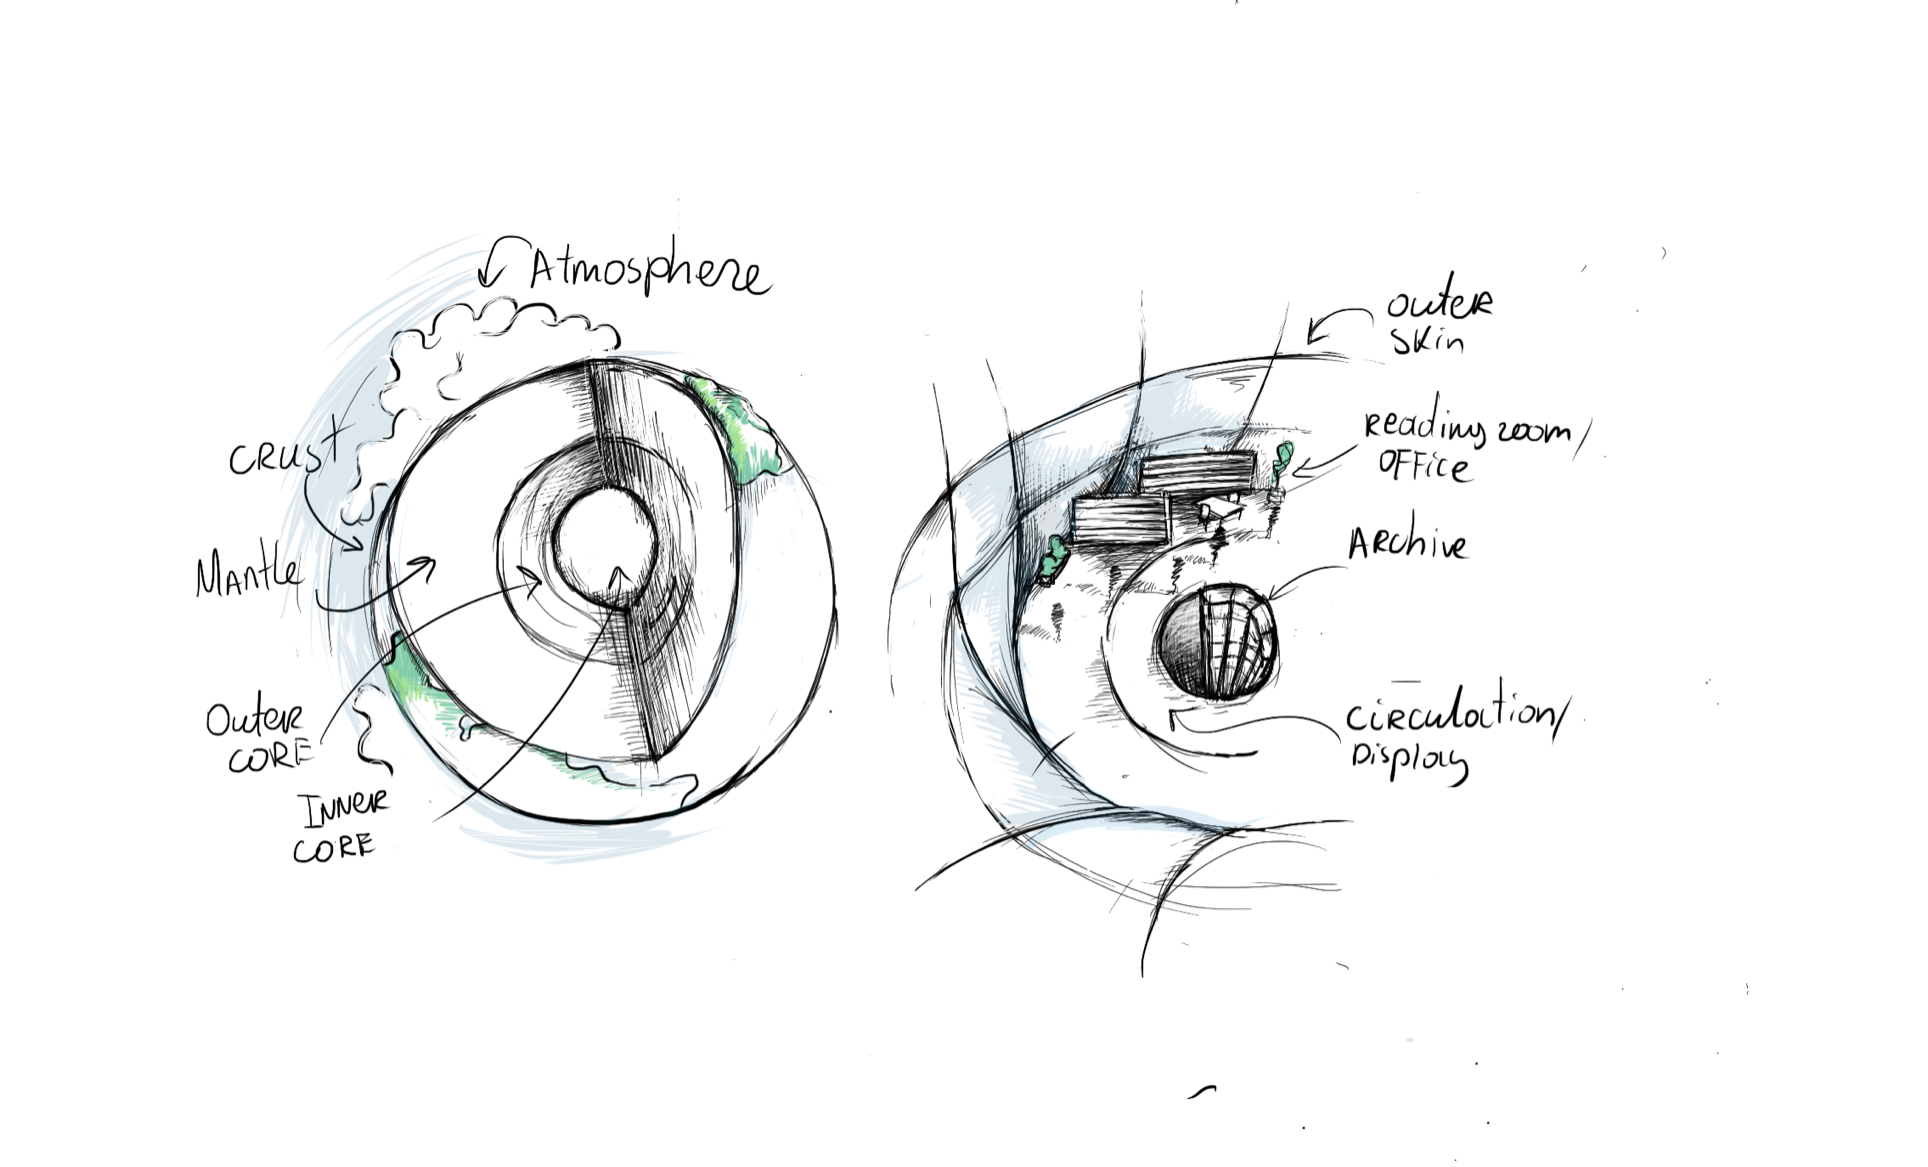 Atmosphere
CRUST
Mantle
Outer
CORE
INNER
CORE
OUTER
SKIN
Reading room/
OFFice
ARchive
CIRCULATION/
DISPLAY